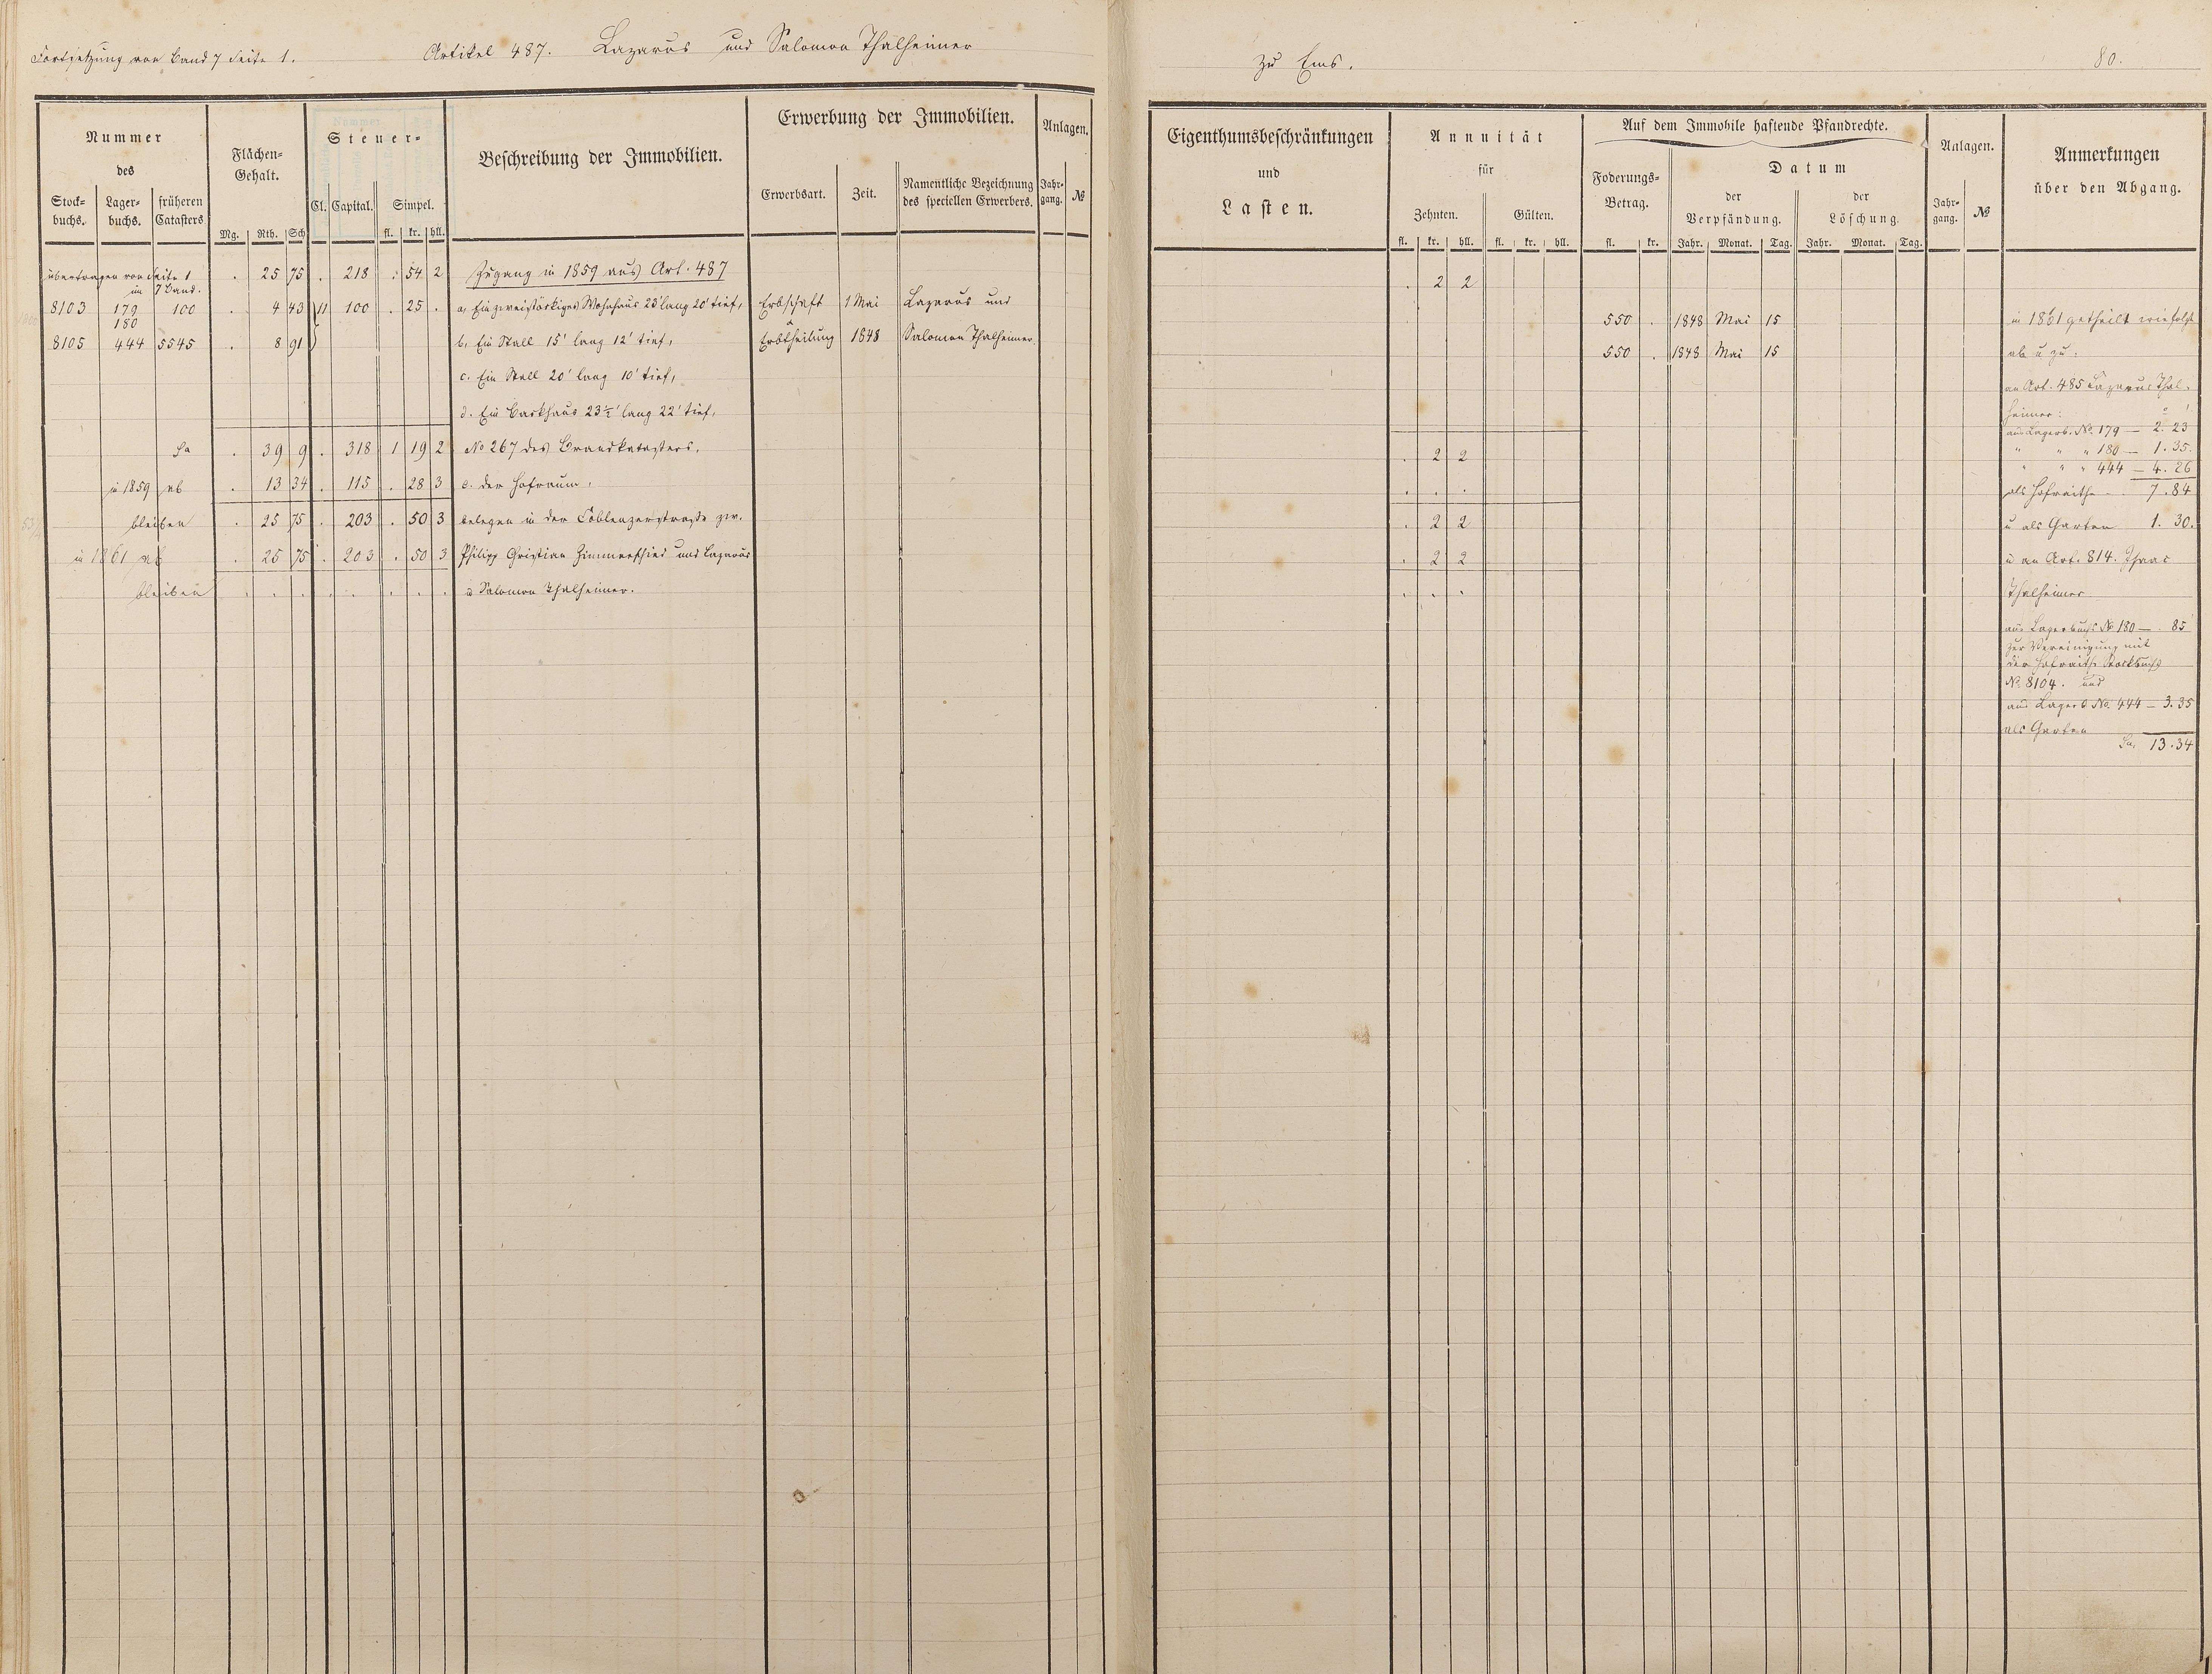 Fortsetzung von Band 7 Seite 1.
Artikel 487. Lazarus und Salomon Thalheimer
zu Ems.
80.
Nummer
des
Stock-
buchs.
Lager-
buchs.
früheren
Catasters
Flächen-
Gehalt.
Mg. Rth. Sch
Steuer-
Cl. Capital. Simpel.
fl. kr. hll.
Beschreibung der Immobilien.
Erwerbung der Immobilien.
Erwerbsart. Zeit.
Namentliche Bezeichnung
des speciellen Erwerbers.
Anlagen.
Jahr-
gang. №
Eigenthumsbeschränkungen
und
Lasten.
Annuität
für
Zehnten. Gülten.
fl. kr. hll. fl. kr. hll.
Auf dem Immobile haftende Pfandrechte.
Foderungs-
Betrag.
fl. kr.
Datum
der
Verpfändung.
der
Löschung.
Jahr. Monat. Tag. Jahr. Monat. Tag.
Anlagen.
Jahr-
gang. №
Anmerkungen
über den Abgang.
übertragen von Seite 1 . 25 75 . 218 . 54 2 Zugang in 1859 aus Art. 487 . 2 2
im 7 Band.
8103 179 100 . 4 43 11 100 . 25 . a, Ein zweistöckiges Wohnhaus 23' lang 20' tief, Erbschaft 1 Mai Lazarus und 550 . 1848 Mai 15
180
8105 444 5545 . 8 91 b, Ein Stall 15' lang 12' tief, u Erbtheilung 1848 Salomon Thalheimer. 550 . 1848 Mai 15
c. Ein Stall 20' lang 10' tief,
d. Ein Backhaus 23½' lang 22' tief,
Sa . 39 9 . 318 1 19 2 No 267 des Brandkatasters. . 2 2
in 1859 ab . 13 34 . 115 . 28 3 e. der Hofraum, . . .
bleiben . 25 75 . 203 . 50 3 belegen in der Coblenzerstraße zw. . 2 2
in 1861 ab . 25 75 . 203 . 50 3 Philipp Christian Zimmerschied und Lazarus . 2 2
bleiben . . . . . . . . u Salomon Thalheimer. . . .
in 1861 getheilt wie folgt
ab u zu:
an Art. 485 Lazarus Thal-
heimer:
aus Lagerb. No. 179 — 2. 23
" " " 180 — 1. 35.
" " " 444 — 4. 26
als Hofraithe - . 7. 84
u als Garten 1. 30.
u an Art. 814. Isaac
Thalheimer
aus Lagerbuchs No 180 — . 85
zur Vereinigung mit
der Hofraithe Stockbuchs
No. 8104. und
aus Lagerb No. 444 — 3. 35
als Garten
Sa. 13. 34